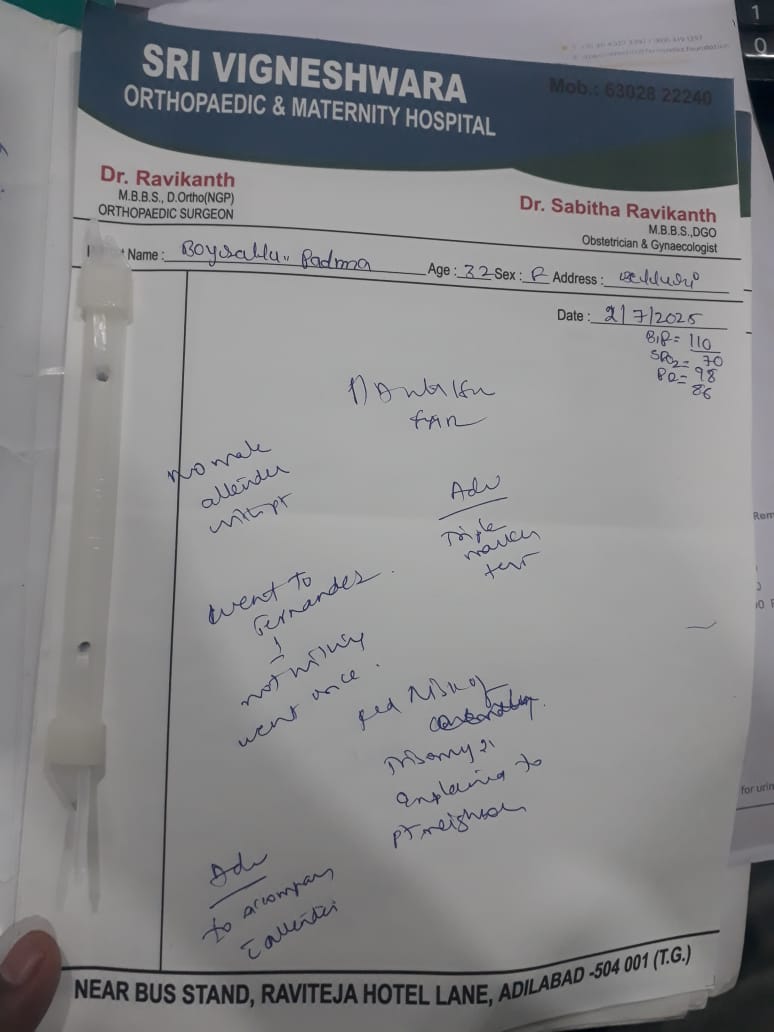 SRI VIGNESHWARA
ORTHOPAEDIC & MATERNITY HOSPITAL
Mob.: 63028 22240
Dr. Ravikanth
M.B.B.S., D.Ortho(NGP)
ORTHOPAEDIC SURGEON
Dr. Sabitha Ravikanth
M.B.B.S.,DGO
Obstetrician & Gynaecologist
Name : Padma Age : 32 Sex : F Address :
Date : 2/7/2025
B.P = 110
70
SPO2 = 98
PR = 86
No male
attender
with pt
Adv
Triple
marker
test
went to
Fernandez.
not willing
went once.
Red Risk of
Trisomy 21
explained to
pt neighbour
Adv
to accompany
c attender
NEAR BUS STAND, RAVITEJA HOTEL LANE, ADILABAD -504 001 (T.G.)
for urin